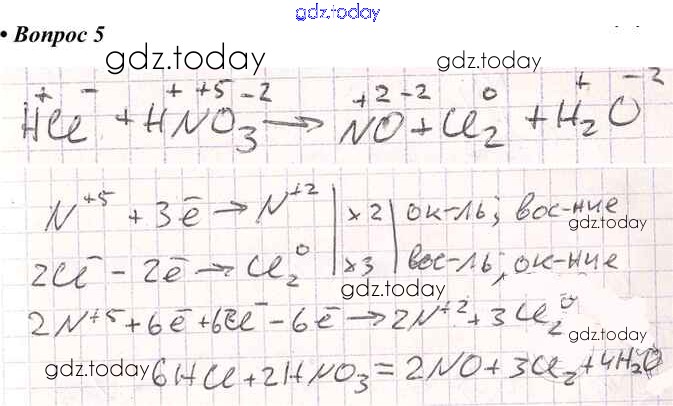 gdz.today
• Вопрос 5
gdz.today gdz.today
H⁺Cl⁻ + H⁺N⁺⁵O₃⁻² → N⁺²O⁻² + Cl₂⁰ + H₂⁺O⁻²
N⁺⁵ + 3ē → N⁺² | x2 | ок-ль; вос-ние
gdz.today
2Cl⁻ - 2ē → Cl₂⁰ | x3 | вос-ль; ок-ние
gdz.today
2N⁺⁵ + 6ē + 6Cl⁻ - 6ē → 2N⁺² + 3Cl₂⁰
gdz.today
gdz.today
6HCl + 2HNO₃ = 2NO + 3Cl₂ + 4H₂O